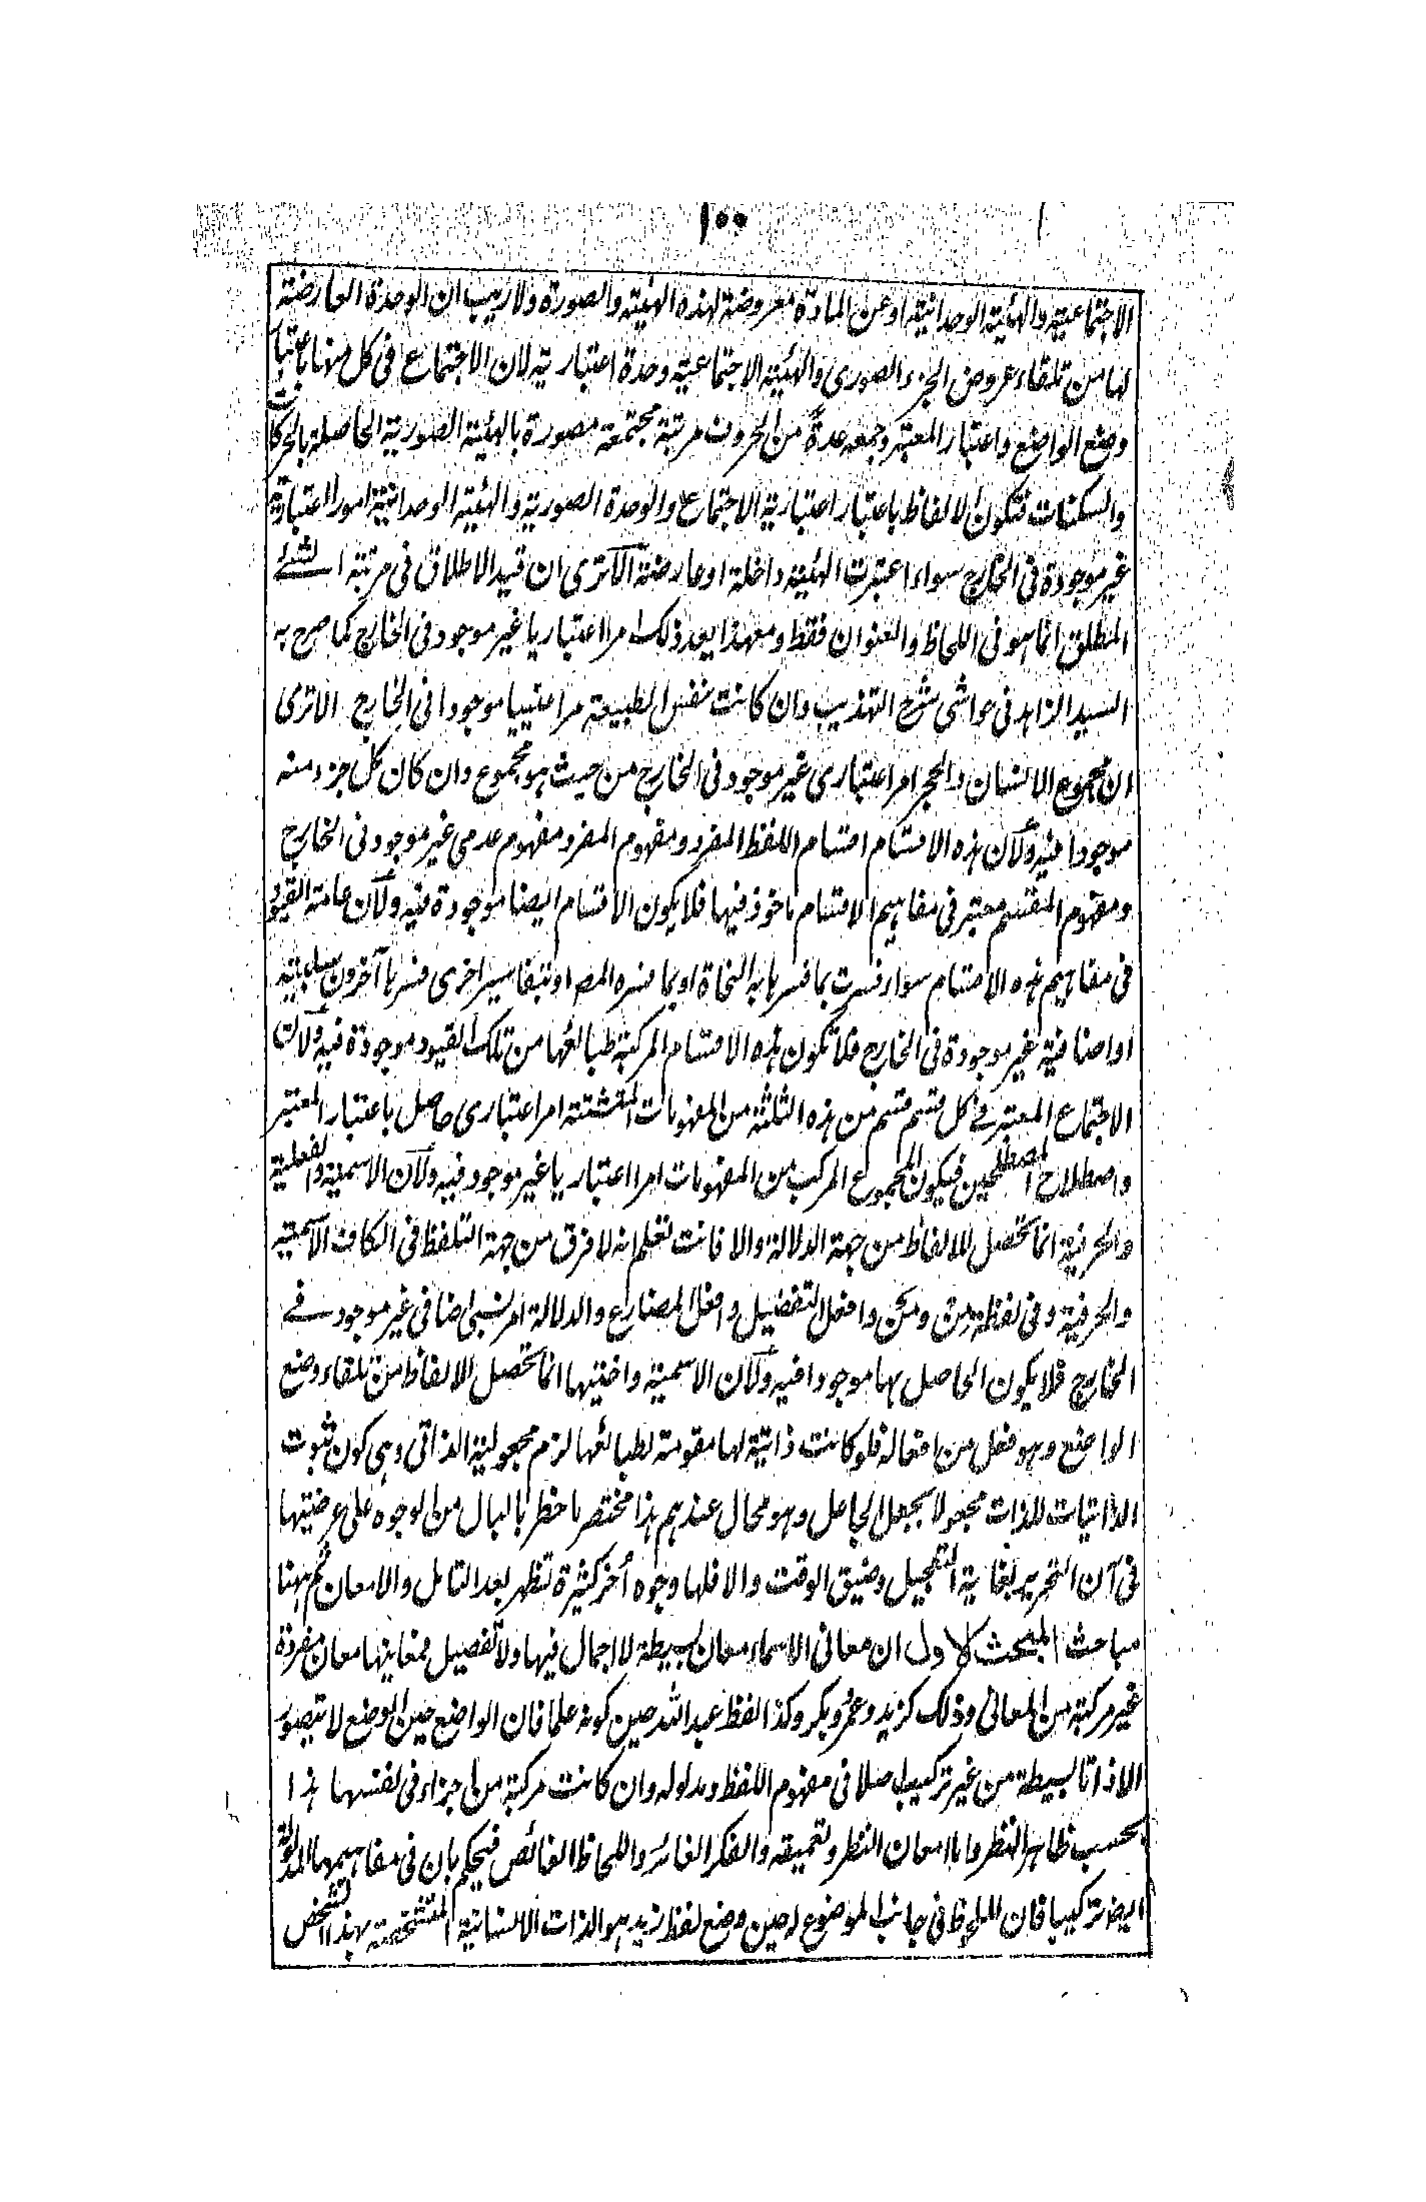 ١٠٠
الاجتماعية والهئية الوحدانية او عن المادة معروضة لهذه الهئية والصورة ولا ريب ان الوحدة العارضة
لها من تلقاء عروض الجزء الصورى والهئية الاجتماعية وحدة اعتبارية لان الاجتماع فى كل منها باعتبار
وضع الواضع واعتبار المعتبر وجمعه عدة من الحروف مرتبة مجتمعة مصورة بالهئية الصورية الحاصلة بالحركات
والسكنات فتكون الالفاظ باعتبار اعتبارية الاجتماع والوحدة الصورية والهئية الوحدانية امورا اعتبارية
غير موجودة فى الخارج سواء اعتبرت الهئية داخلة او عارضة الا ترى ان قيد الاطلاق فى مرتبة الشئے
المطلق انما هو فى اللحاظ والعنوان فقط ومعهذا يعد ذلك امرا اعتباريا غير موجود فى الخارج كما صرح به
السيد الزاهد فى حواشى شرح التهذيب وان كانت نفس الطبيعة امرا عينيا موجودا فى الخارج الا ترى
ان مجموع الانسان والحجر امر اعتبارى غير موجود فى الخارج من حيث هو مجموع وان كان كل جزء منه
موجودا فيه ولان هذه الاقسام اقسام اللفظ المفرد ومفهوم المفرد مفهوم عدمى غير موجود فى الخارج
ومفهوم المقسم معتبر فى مفاهيم الاقسام ماخوذ فيها فلا يكون الاقسام ايضا موجودة فيه ولان عامة القيود
فى مفاهيم هذه الاقسام سواء فسرت بما فسر بها به النحاة او بما فسره المصـ او بتفاسير اخرى فسر بها آخرون سلبية
او اضافية غير موجودة فى الخارج فلا تكون هذه الاقسام المركبة طبائعها من تلك القيود موجودة فيه ولان
الاجتماع المعتبر فے كل قسم قسم من هذه الثلثة من المفهومات المتشتتة امر اعتبارى حاصل باعتبار المعتبر
واصطلاح المصطلحين فيكون المجموع المركب من المفهومات امرا اعتباريا غير موجود فيه ولان الاسمية والفعلية
والحرفية انما تحصل للالفاظ من جهة الدلالة والا فانت تعلم انه لا فرق من جهة التلفظ فى الكاف الاسمية
والحرفية وفى لفظة من ومن وافعل التفضيل وافعل المضارع والدلالة امر نسبى اضافى غير موجود فے
الخارج فلا يكون الحاصل بها موجودا فيه ولان الاسمية واختيها انما تحصل الالفاظ من تلقاء وضع
الواضع وهو فعل من افعاله فلو كانت ذاتية لها مقومة لطبائعها لزم مجعولية الذاتى وهى كون ثبوت
الذاتيات للذات مجعولا بجعل الجاعل وهو محال عندهم هذا مختصر ما خطر بالبال من الوجوه على عرضيتها
فى آن التحرير بغاية التعجيل وضيق الوقت والا فلها وجوه اُخر كثيرة تظهر بعد التامل والامعان ثم ههنا
مباحث المبحث الاول ان معانى الاسماء معان بسيطة لا اجمال فيها ولا تفصيل فمعانيها معان مفردة
غير مركبة من المعانى وذلك كزيد وعمرو وبكر وكذا لفظ عبد الله حين كونه علما فان الواضع حين الوضع لا يتصور
الا ذاتا بسيطة من غير تركيب اصلا فى مفهوم اللفظ ومدلوله وان كانت مركبة من اجزاء فى نفسها هذا
بحسب ظاهر النظر واما امعان النظر وتعميقه والفكر الغائر واللحاظ الغائص فيحكم بان فى مفاهيمها المدلولة
ايضا تركيبا فان الملحوظ فى جانب الموضوع له حين وضع لفظ زيد هو الذات الانسانية المتشخصة بهذا التشخص